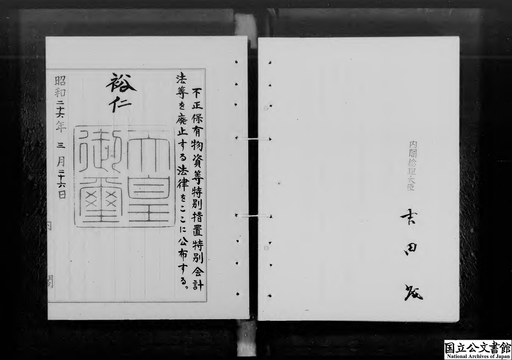 不正保有物資等特別措置特別会計
法等を廃止する法律をここに公布する。
裕仁
天皇
御璽
昭和二十六年三月二十六日
内閣
内閣総理大臣
吉田茂
国立公文書館
National Archives of Japan